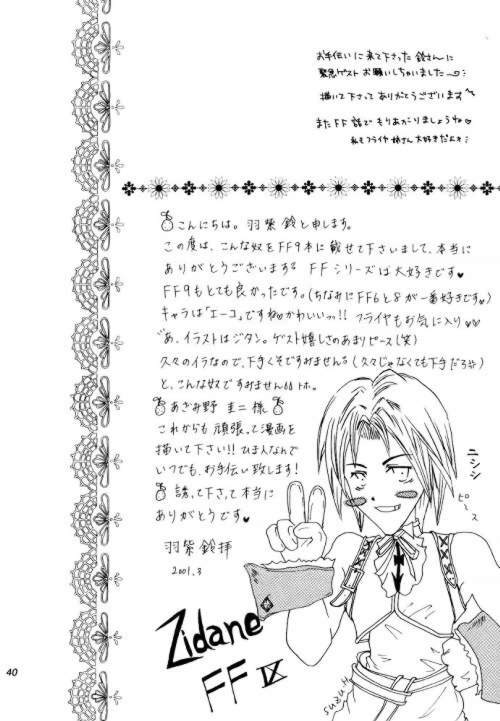 お手伝いに来て下さった鈴さんに
緊急ゲストお願いしちゃいました
描いて下さってありがとうございます
またFF話でもりあがりましょうね♡
私もフライヤ姉さん大好きだよ
こんにちは。羽柴鈴と申します。
この度は、こんな奴をFF9本に載せて下さいまして、本当に
ありがとうございます FFシリーズは大好きです♥
FF9もとても良かったです。(ちなみにFF6と8が一番好きです♥)
キャラは「エーコ」ですね♡かわいいっ!! フライヤもお気に入り♥♥
あ、イラストはジタン。ゲスト嬉しさのあまりピース(笑)
久々のイラなので、下手くそですみません(久々じゃなくても下手だろ)
と、こんな奴ですみません トホ。
あざみ野 圭二 様
これからも頑張って漫画を
描いて下さい!! ひま人なんで
いつでも、お手伝い致します!
誘って下さって本当に
ありがとうです♥
羽柴鈴拝
2001.3
ニシシ
ピース
Zidane
FF IX
suzuH
40